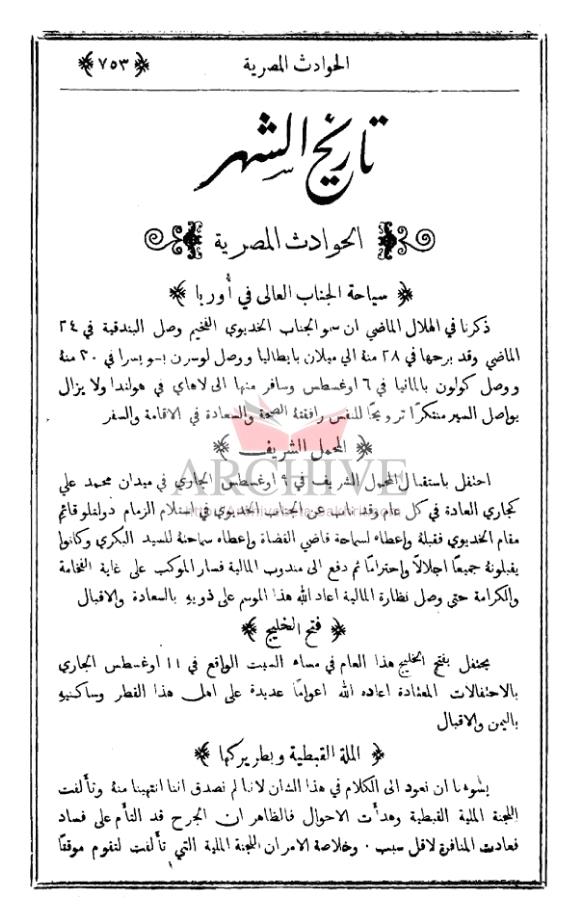 الحوادث المصرية
﴿٧٥٣﴾
تاريخ الشهر
الحوادث المصرية
﴿ سياحة الجناب العالى في أوربا ﴾
ذكرنا في الهلال الماضي ان سمو الجناب الخديوي الفخيم وصل البندقية في ٢٤
الماضي وقد برحها في ٢٨ منهُ الى ميلان بايطاليا ووصل لوسرن بسويسرا في ٣٠ منهُ
ووصل كولون بالمانيا في ٦ اوغسطس وسافر منها الى لاهاي في هولندا ولا يزال
يواصل السير متنكرًا ترويجًا للنفس رافقتهُ الصحة والسعادة في الاقامة والسفر
﴿ المحمل الشريف ﴾
احتفل باستقبال المحمل الشريف في ٩ اوغسطس الجاري في ميدان محمد علي
كجاري العادة في كل عام وقد ناب عن الجناب الخديوي في استلام الزمام دولتلو قائم
مقام الخديوي فقبلهُ واعطاه لسماحة قاضي القضاة واعطاه سماحتهُ للسيد البكري وكانوا
يقبلونهُ جميعًا اجلالًا واحترامًا ثم دفع الى مندوب المالية فسار الموكب على غاية الفخامة
والكرامة حتى وصل نظارة المالية اعاد الله هذا الموسم على ذويهِ بالسعادة والاقبال
﴿ فتح الخليج ﴾
يحتفل بفتح الخليج هذا العام في مساء السبت الواقع في ١١ اوغسطس الجاري
بالاحتفالات المعتادة اعاده الله اعوامًا عديدة على اهل هذا القطر وساكنيهِ
باليمن والاقبال
﴿ الملة القبطية وبطريركها ﴾
يسُوءنا ان نعود الى الكلام في هذا الشان لاننا لم نصدق اننا انتهينا منهُ وتألفت
اللجنة الملية القبطية وهدأت الاحوال فالظاهر ان الجرح قد التأم على فساد
فعادت المنافرة لاقل سبب . وخلاصة الامر ان اللجنة الملية التي تألفت لتقوم موقتًا
ARCHIVE